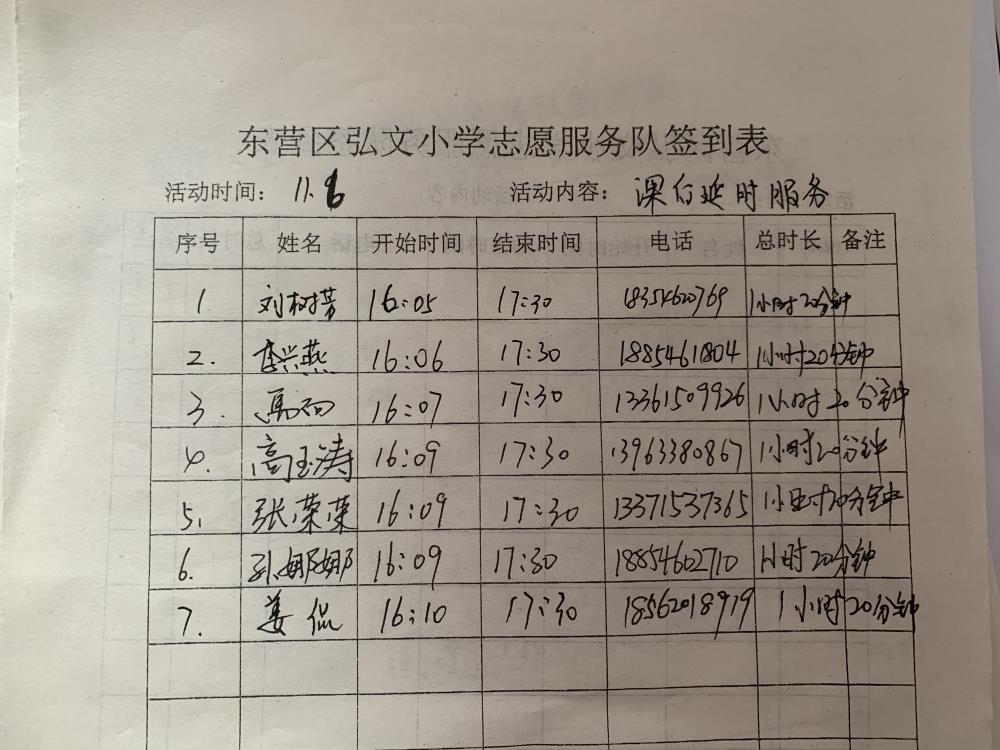 东营区弘文小学志愿服务队签到表
活动时间: 11.6 活动内容: 课后延时服务
序号 姓名 开始时间 结束时间 电话 总时长 备注
1 刘树芳 16:05 17:30 18354620769 1小时20分钟
2. 李兴燕 16:06 17:30 1885461804 1小时20分钟
3. 16:07 17:30 13361509926 1小时20分钟
4. 高玉涛 16:09 17:30 13963380867 1小时20分钟
5. 张荣荣 16:09 17:30 13371537365 1小时20分钟
6. 孙娜娜 16:09 17:30 18854602710 1小时20分钟
7. 姜侃 16:10 17:30 18562018919 1小时20分钟